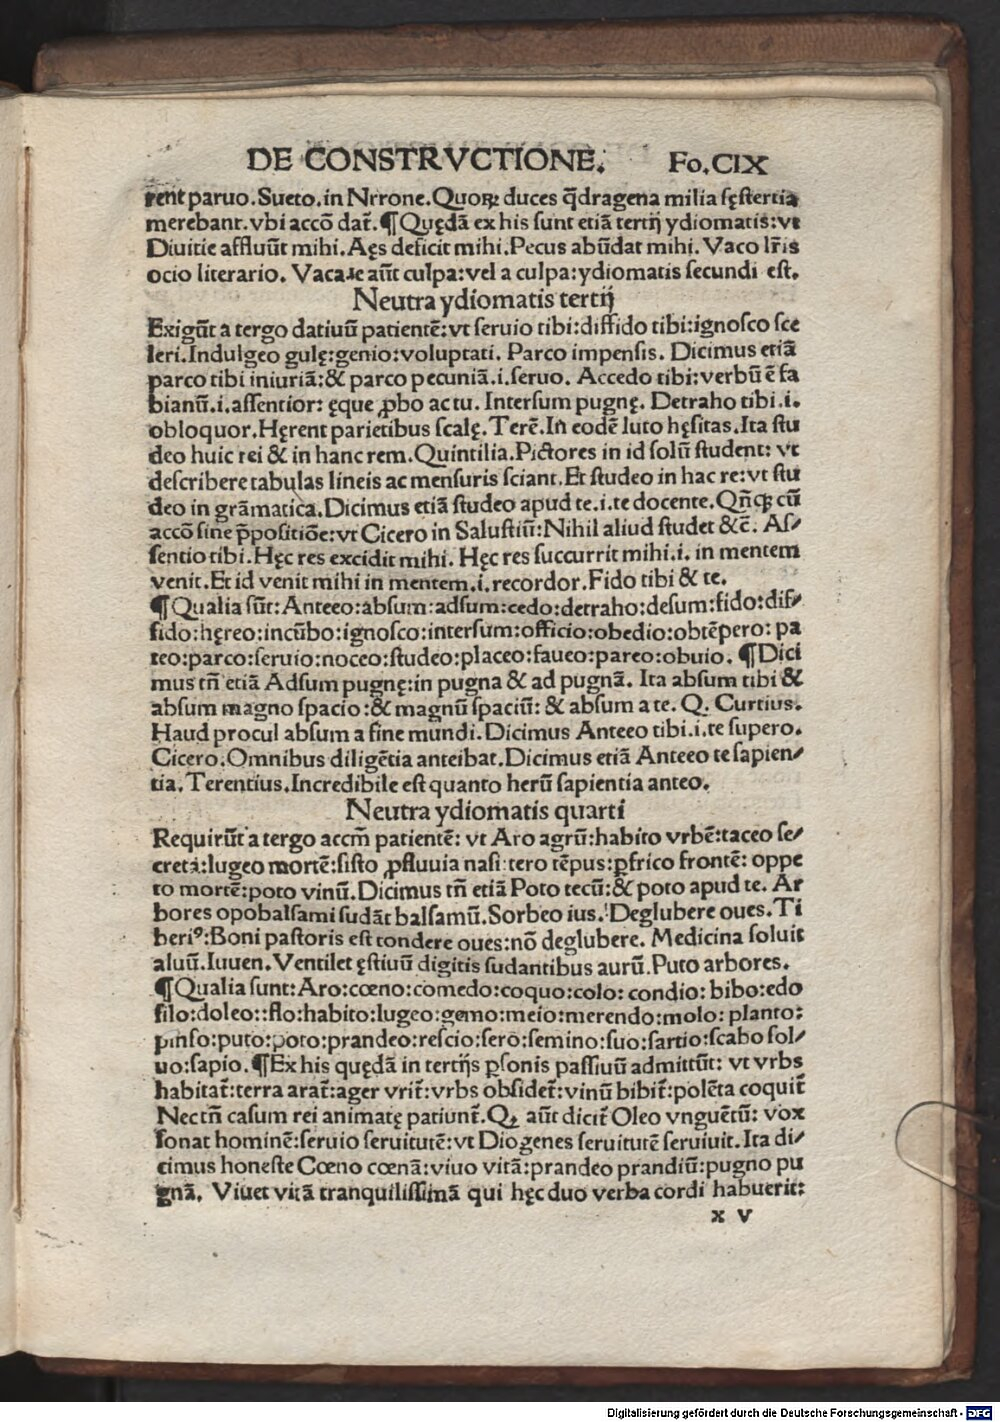 DE CONSTRVCTIONE. Fo.CIX
rent paruo.Sueto.in Nrrone.Quoꝝ duces q̄dragena milia sęstertia
merebant.vbi accō dat̄.¶Quędā ex his sunt etiā tertij ydiomatis:vt
Diuitie affluūt mihi.Aęs deficit mihi.Pecus abūdat mihi. Vaco lr̄is
ocio literario. Vacare aūt culpa:vel a culpa:ydiomatis secundi est.
Neutra ydiomatis tertij
Exigūt a tergo datiuū patientē:vt seruio tibi:diffido tibi:ignosco sce
leri.Indulgeo gulę:genio:voluptati. Parco impensis. Dicimus etiā
parco tibi iniuriā:& parco pecuniā.i.seruo. Accedo tibi:verbū ē fa
bianū.i.assentior: ęque ꝓbo ac tu. Intersum pugnę. Detraho tibi.i.
obloquor.Hęrent parietibus scalę. Terē.In̄ eodē luto hęsitas.Ita stu
deo huic rei & in hanc rem.Quintilia.Pictores in id solū student: vt
describere tabulas lineis ac mensuris sciant.Et studeo in hac re:vt stu
deo in grāmatica.Dicimus etiā studeo apud te.i.te docente.Qn̄cꝗ cū
accō sine p̄positiōe:vt Cicero in Salustiū:Nihil aliud studet &c̄. As/
sentio tibi.Hęc res excidit mihi. Hęc res succurrit mihi.i. in mentem
venit.Et id venit mihi in mentem.i.recordor.Fido tibi & te.
¶Qualia sūt:Anteeo:absum:adsum:cedo:detraho:desum:fido:dif/
fido:hęreo:incūbo:ignosco:intersum:officio:obedio:obtēpero: pa
teo:parco:seruio:noceo:studeo:placeo:faueo:pareo:obuio. ¶Dici
mus tn̄ etiā Adsum pugnę:in pugna & ad pugnā. Ita absum tibi &
absum magno spacio:& magnū spaciū: & absum a te. Q. Curtius.
Haud procul absum a fine mundi.Dicimus Anteeo tibi.i.te supero.
Cicero.Omnibus diligētia anteibat.Dicimus etiā Anteeo te sapien/
tia.Terentius.Incredibile est quanto herū sapientia anteo.
Neutra ydiomatis quarti
Requirūt a tergo accm̄ patientē: vt Aro agrū:habito vrbē:taceo se/
creta:lugeo mortē:sisto ꝓfluuia nasi:tero tēpus:ꝑfrico frontē: oppe
to mortē:poto vinū.Dicimus tn̄ etiā Poto tecū:& poto apud te. Ar
bores opobalsami sudāt balsamū.Sorbeo ius. Deglubere oues.Ti
beriꝰ:Boni pastoris est tondere oues:nō deglubere. Medicina soluit
aluū.Iuuen.Ventilet ęstiuū digitis sudantibus aurū.Puto arbores.
¶Qualia sunt:Aro:cœno:comedo:coquo:colo: condio: bibo:edo
filo:doleo::flo:habito:lugeo:gemo:meio:merendo:molo: planto:
pinso:puto:poto:prandeo:rescio:sero:semino:suo:sartio:scabo sol/
uo:sapio. ¶Ex his quędā in tertijs ꝑsonis passiuū admittūt: vt vrbs
habitat̄:terra arat̄:ager vrit̄:vrbs obsidet̄:vinū bibit̄:polēta coquit̄
Nec tn̄ casum rei animatę patiunt̄.Qꝫ aūt dicit̄ Oleo vnguētū: vox
sonat hominē:seruio seruitutē:vt Diogenes seruitutē seruiuit.Ita di/
cimus honeste Cœno cœnā:viuo vitā:prandeo prandiū:pugno pu
gnā. Viuet vitā tranquilissimā qui hęc duo verba cordi habuerit:
x v
Digitalisierung gefördert durch die Deutsche Forschungsgemeinschaft - DFG